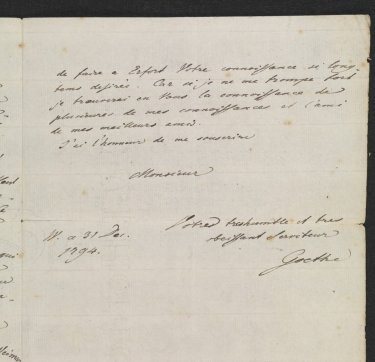 de faire a Erfort Votre connoissance si long
tems desirée. Car si je ne me trompe fort
je trouverai en Vous la connoissance de
plusieures de mes connoissances et l'ami
de mes meilleurs amis.
J'ai l'honneur de me souscrire
Monsieur
Votre treshumble et tres
obeissant Serviteur
W. a 31 Dec.
1794.
Goethe